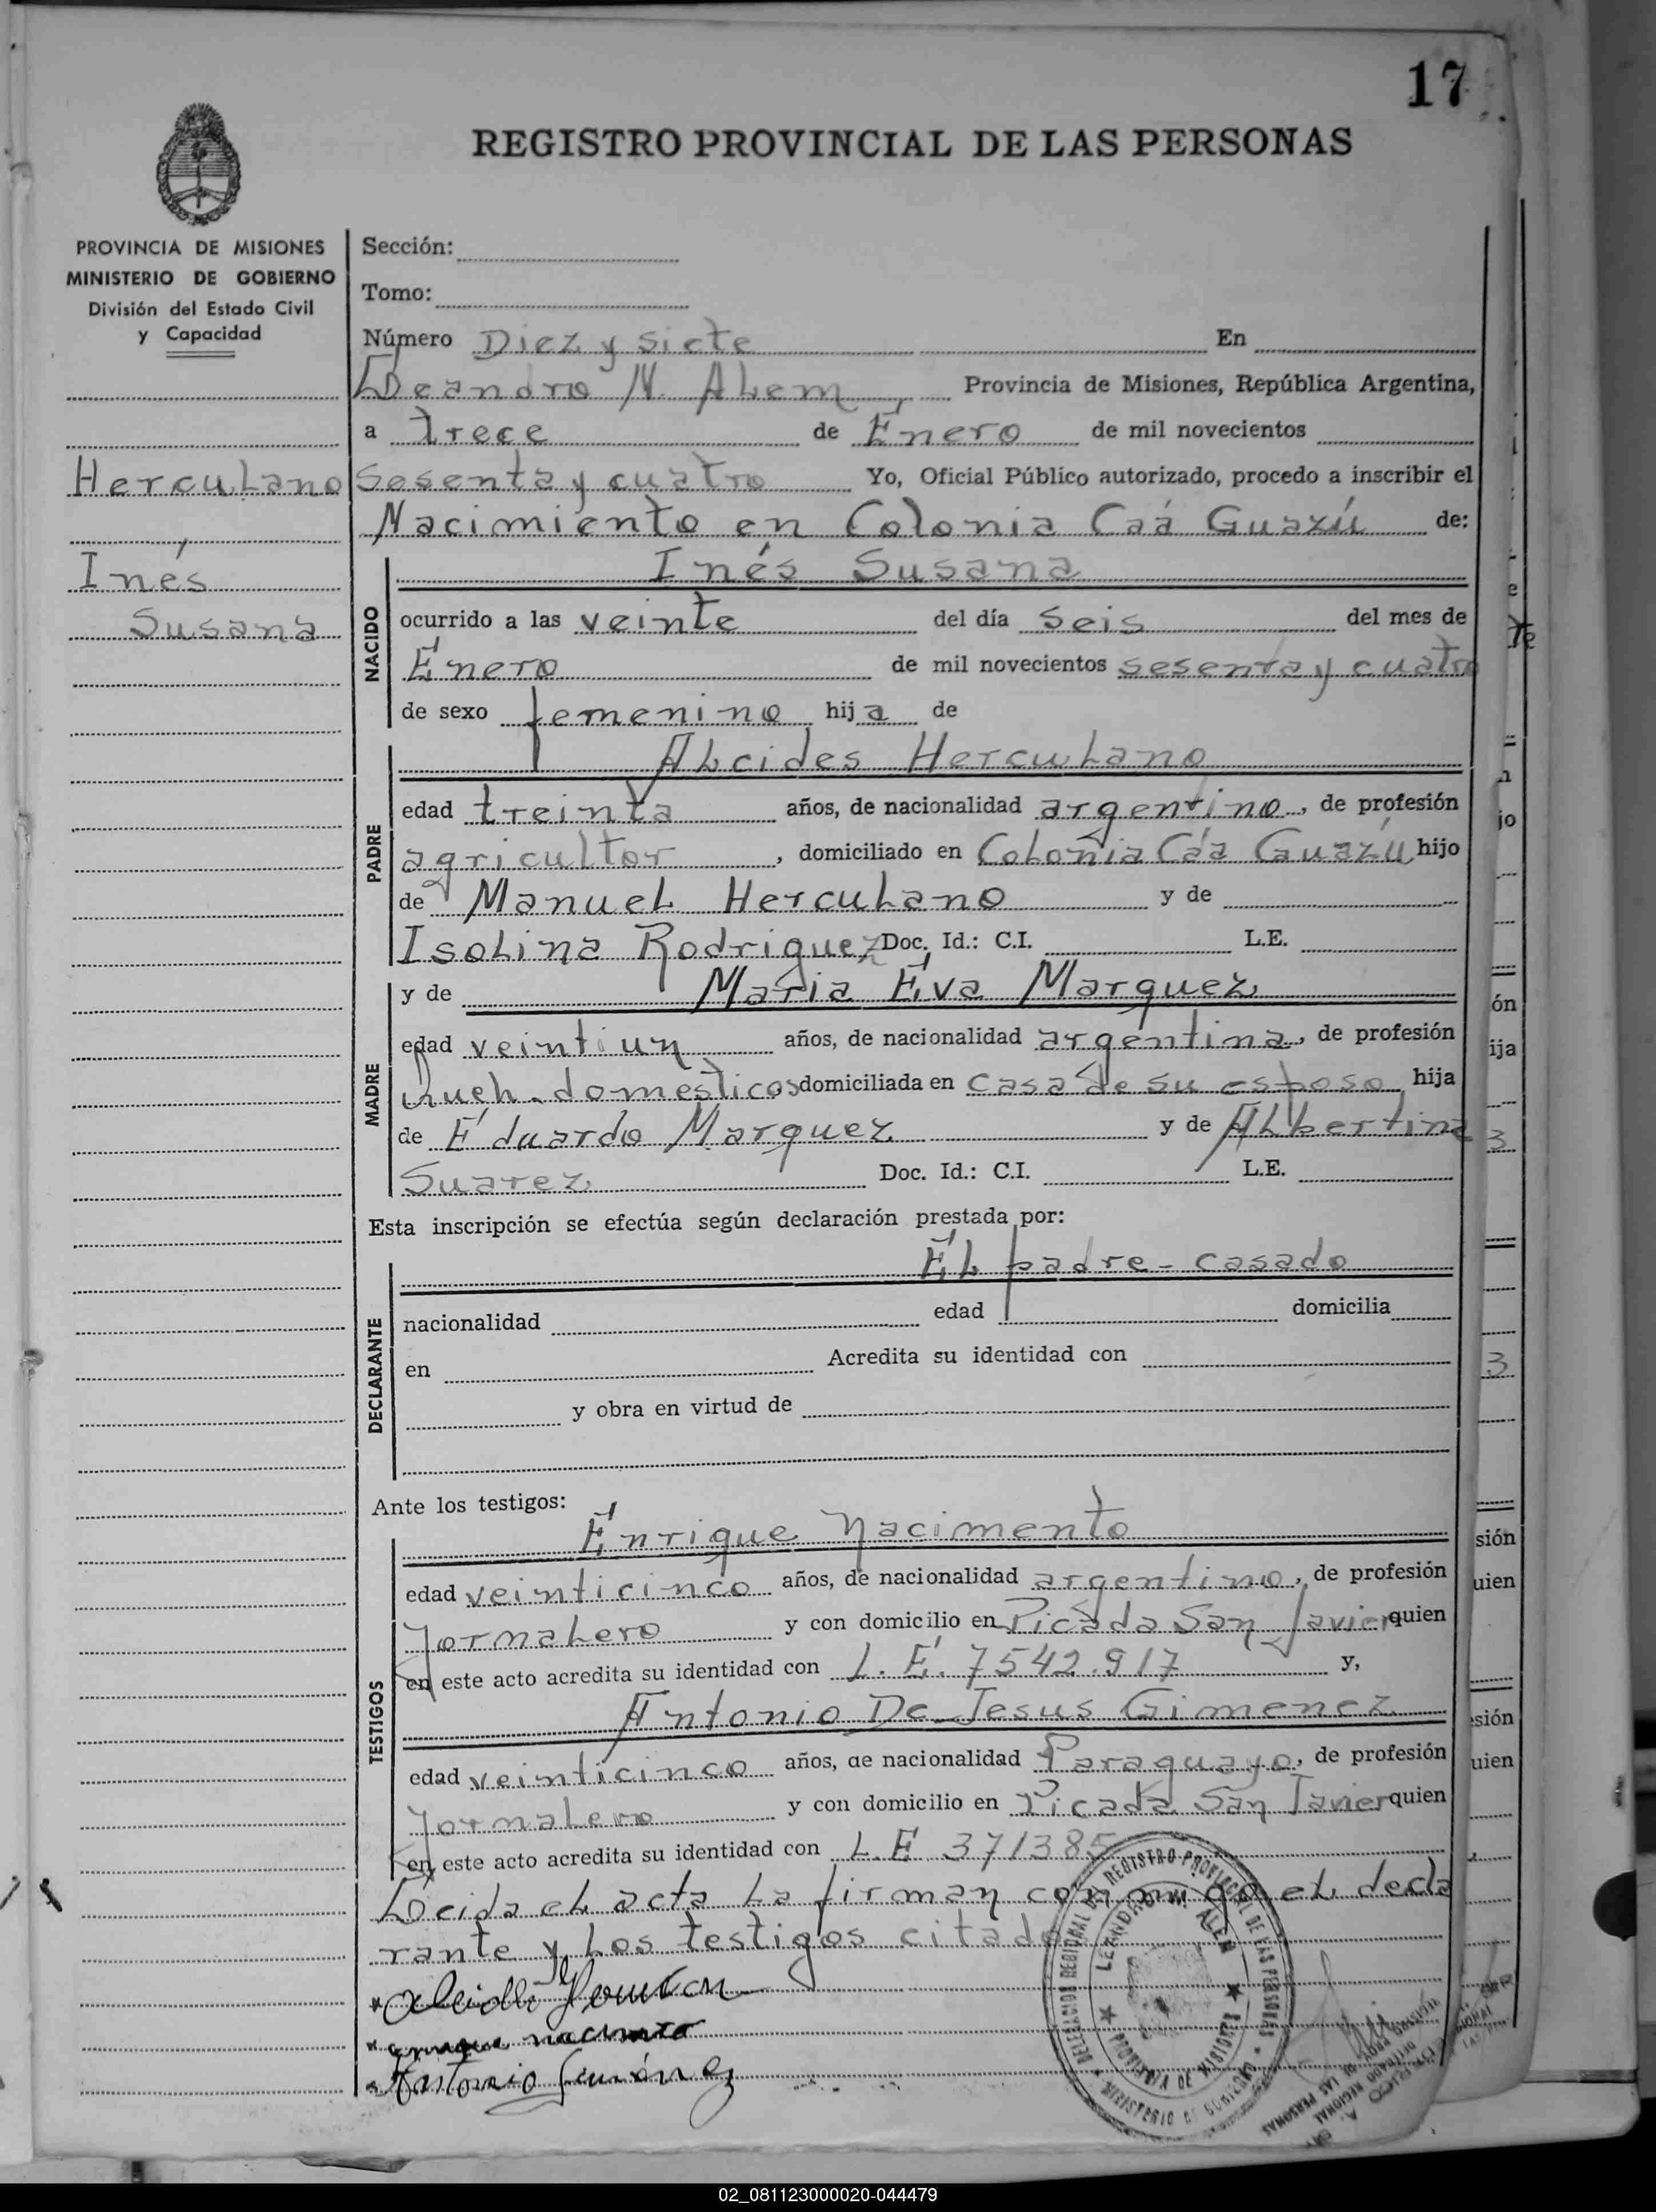 17
REGISTRO PROVINCIAL DE LAS PERSONAS
PROVINCIA DE MISIONES
MINISTERIO DE GOBIERNO
División del Estado Civil
y Capacidad
Herculano
Inés
Susana
Sección:
Tomo:
Número Diez y siete En
Leandro N. Alem, Provincia de Misiones, República Argentina,
a trece de Enero de mil novecientos
sesenta y cuatro Yo, Oficial Público autorizado, procedo a inscribir el
Nacimiento en Colonia Caá Guazú de:
NACIDO
Inés Susana
ocurrido a las veinte del día seis del mes de
Enero de mil novecientos sesenta y cuatro
de sexo femenino hija de
PADRE
Alcides Herculano
edad treinta años, de nacionalidad argentino, de profesión
agricultor, domiciliado en Colonia Cáa Guazú hijo
de Manuel Herculano y de
Isolina Rodriguez Doc. Id.: C.I. L.E.
MADRE
y de Maria Eva Marquez
edad veintiun años, de nacionalidad argentina, de profesión
queh. domesticos domiciliada en casa de su esposo hija
de Eduardo Marquez y de Albertina
Suarez Doc. Id.: C.I. L.E.
Esta inscripción se efectúa según declaración prestada por:
DECLARANTE
El padre - casado
nacionalidad edad domicilia
en Acredita su identidad con
y obra en virtud de
Ante los testigos:
TESTIGOS
Enrique Nacimento
edad veinticinco años, de nacionalidad argentino, de profesión
Jornalero y con domicilio en Picada San Javier quien
en este acto acredita su identidad con L.E. 7542.917 y,
Antonio De Jesus Gimenez
edad veinticinco años, de nacionalidad Paraguayo, de profesión
Jornalero y con domicilio en Picada San Javier quien
en este acto acredita su identidad con L.E 371385
Leida el acta la firman conmigo el decla
rante y los testigos citados
enrique nacimento
Antonio Jiménez
DELEGACION REGIONAL DEL REGISTRO PROVINCIAL DE LAS PERSONAS
LEANDRO N. ALEM
PROVINCIA DE MISIONES
MINISTERIO DE GOBIERNO
02_081123000020-044479